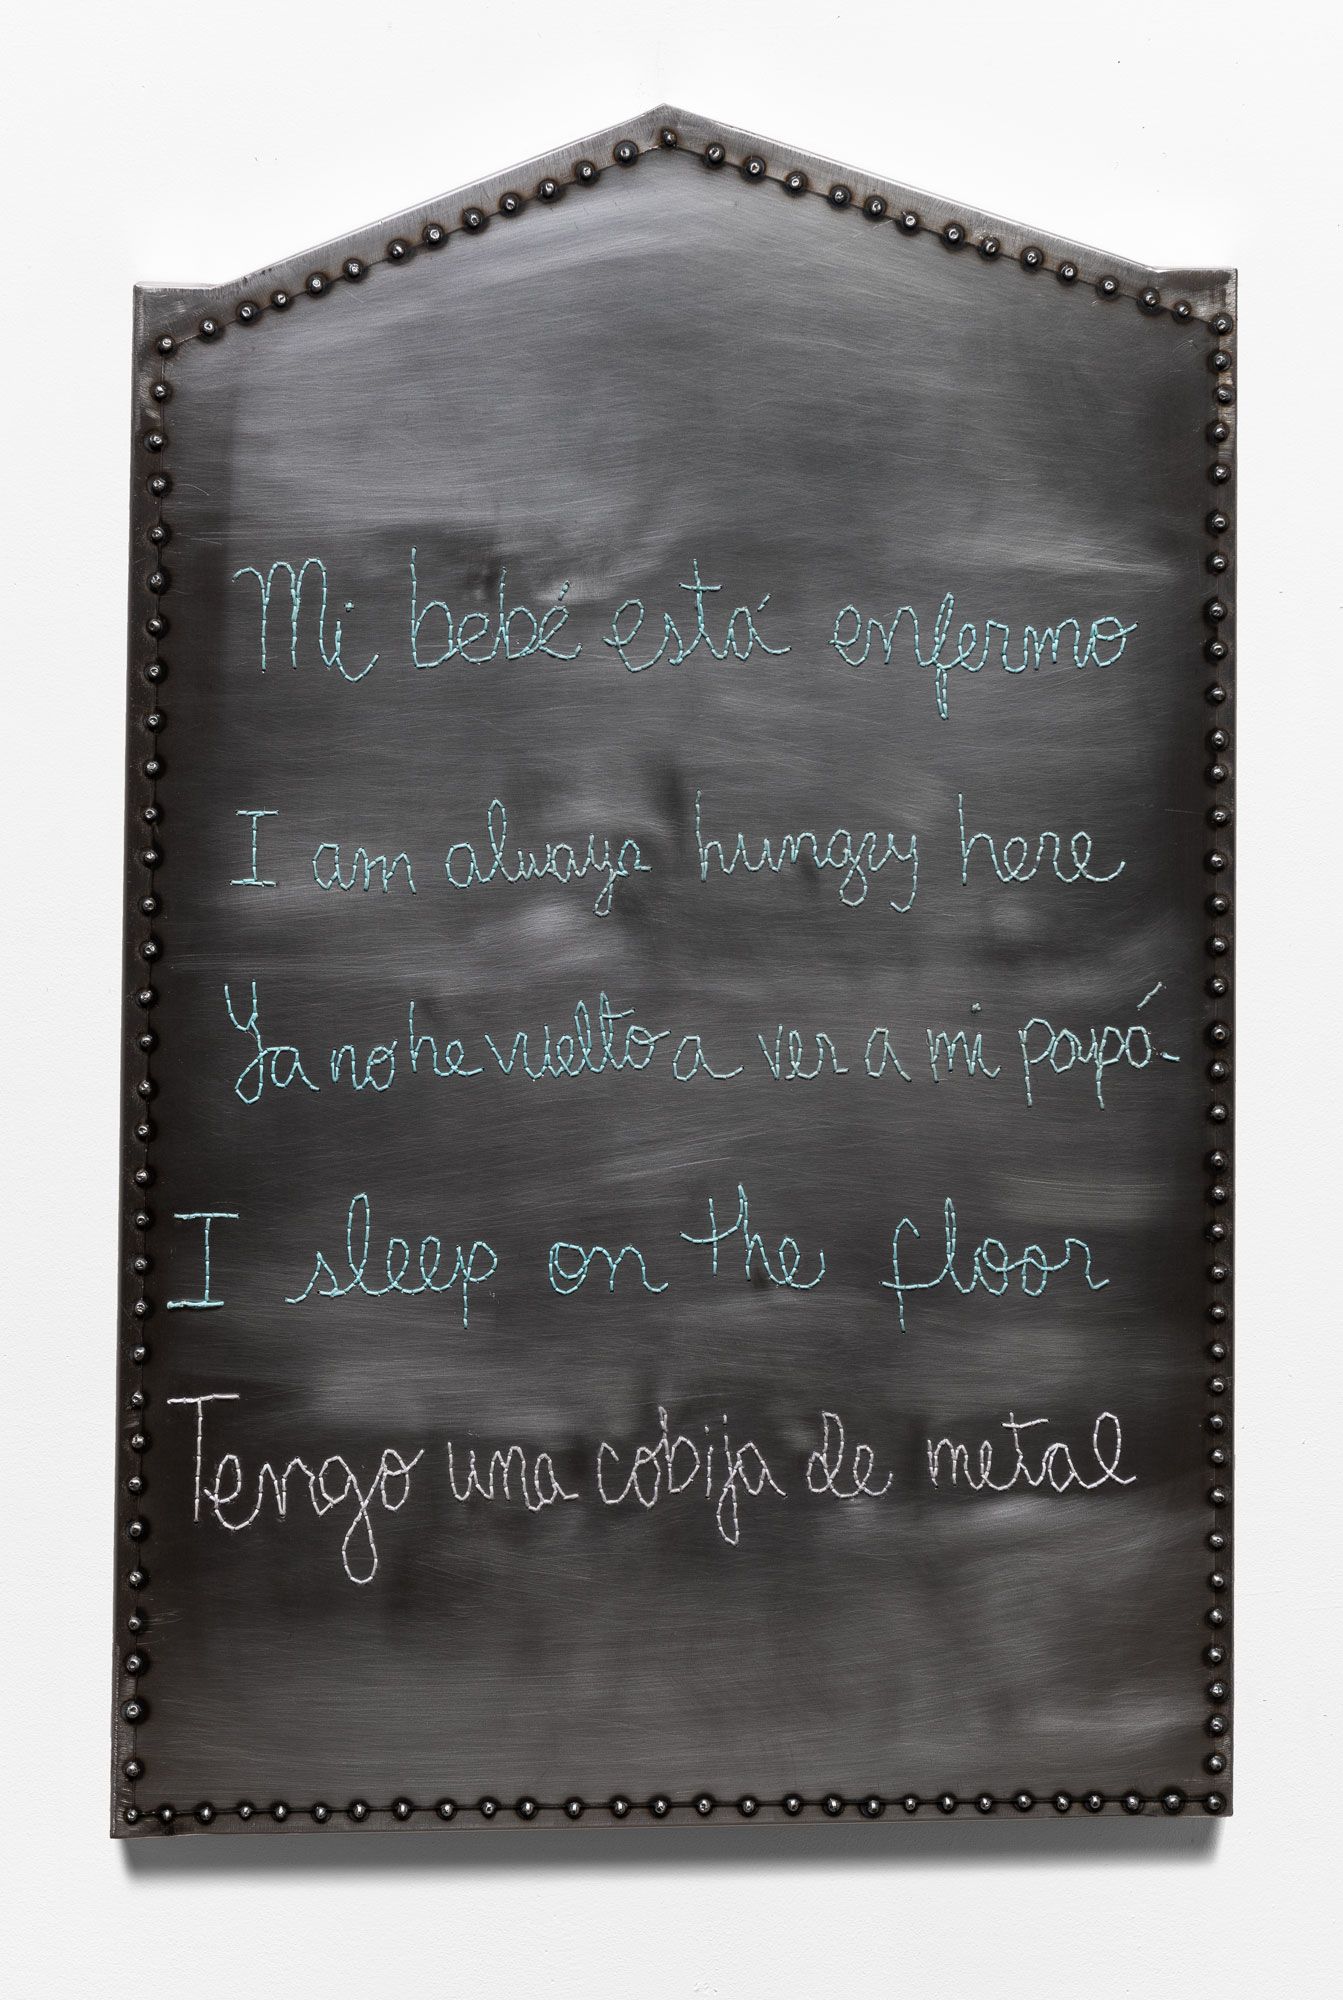 Mi bebé está enfermo
I am always hungry here
Ya no he vuelto a ver a mi papá
I sleep on the floor
Tengo una cobija de metal